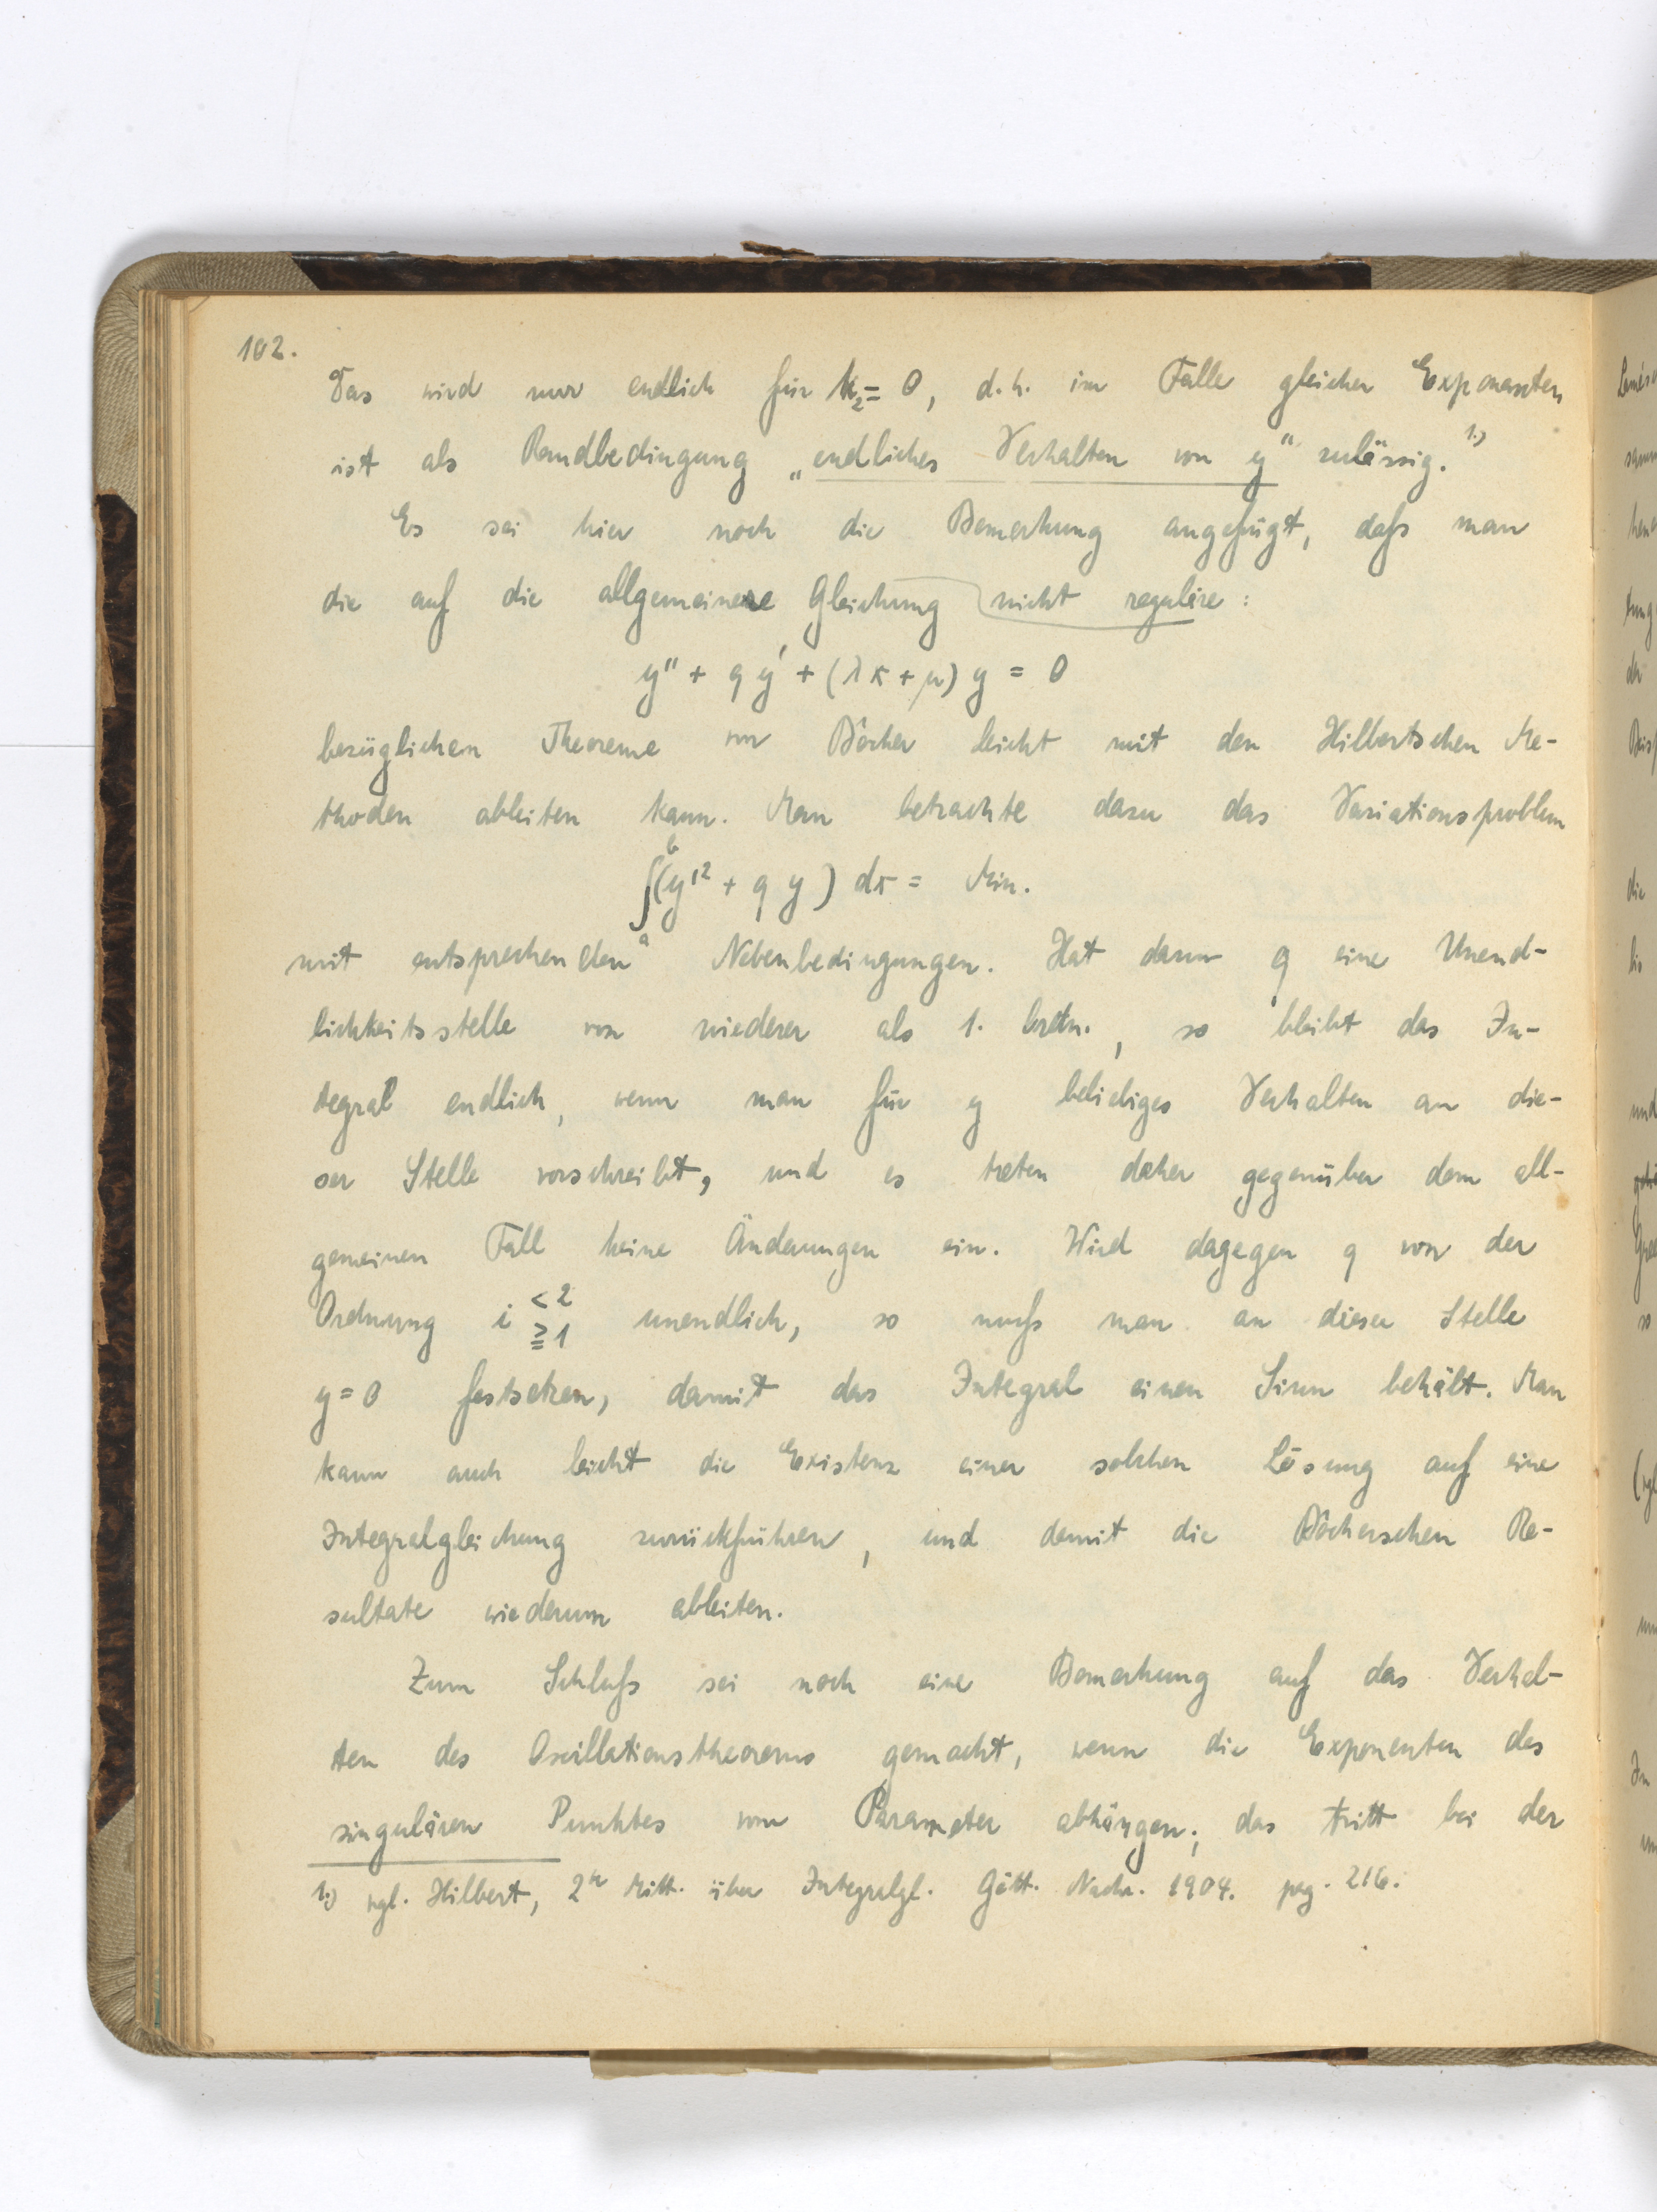 102.
Das wird nur endlich für k₂ = 0, d.h. im Falle gleicher Exponenten
ist als Randbedingung „endliches Verhalten von y" zulässig. 1.)
Es sei hier noch die Bemerkung angefügt, dafs man
die auf die allgemeinere Gleichung nicht reguläre:
y'' + q y' + (λx + μ) y = 0
bezüglichen Theoreme von Bôcher leicht mit den Hilbertschen Me-
thoden ableiten kann. Man betrachte dazu das Variationsproblem
∫ₐᵇ (y'² + q y) dx = Min.
mit entsprechenden Nebenbedingungen. Hat dann q eine Unend-
lichkeitsstelle von niederer als 1. Ordn., so bleibt das In-
tegral endlich, wenn man für y beliebiges Verhalten an die-
ser Stelle vorschreibt, und es treten daher gegenüber dem all-
gemeinen Fall keine Änderungen ein. Wird dagegen q von der
Ordnung i < 2 ≧ 1 unendlich, so mufs man an dieser Stelle
y = 0 festsetzen, damit das Integral einen Sinn behält. Man
kann auch leicht die Existenz einer solchen Lösung auf eine
Integralgleichung zurückführen, und damit die Bôcherschen Re-
sultate wiederum ableiten.
Zum Schlufs sei noch eine Bemerkung auf das Verhal-
ten des Oscillationstheorems gemacht, wenn die Exponenten des
singulären Punktes vom Parameter abhängen; das tritt bei der
1.) vgl. Hilbert, 2te Mitt. über Integralgl. Gött. Nachr. 1904. pag. 216.